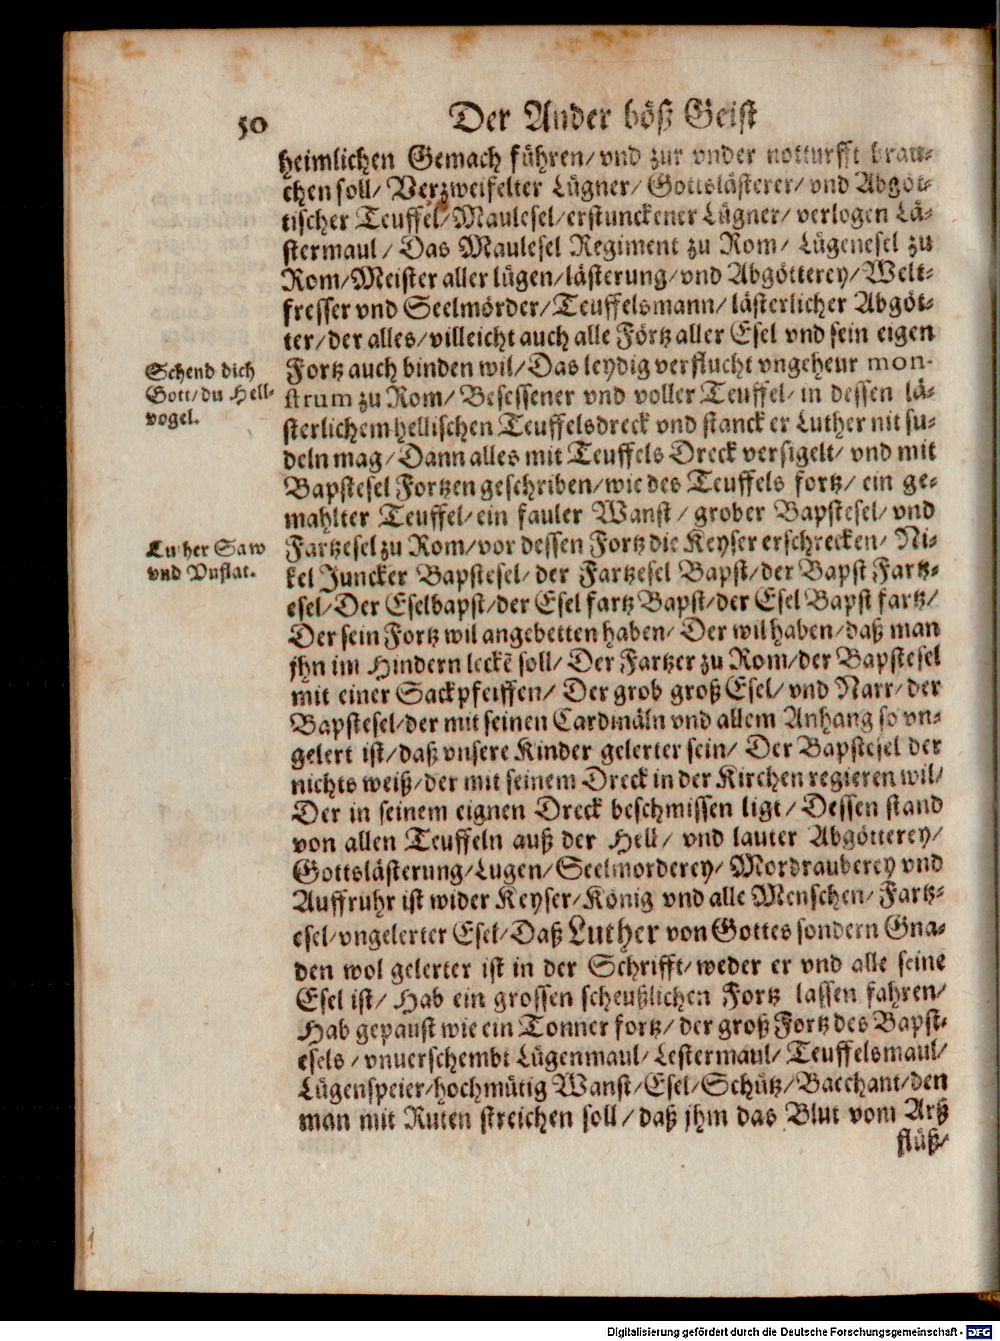 50
Der Ander böß Geist
heimlichen Gemach führen/ vnd zur vnder notturfft brau-
chen soll/ Verzweifelter Lügner/ Gottslästerer/ vnd Abgöt-
tischer Teuffel/ Maulesel/ erstunckener Lügner/ verlogen Lä-
stermaul/ Das Maulesel Regiment zu Rom/ Lügenesel zu
Rom/ Meister aller lügen/ lästerung/ vnd Abgötterey/ Welt-
fresser vnd Seelmörder/ Teuffelsmann/ lästerlicher Abgöt-
ter/ der alles/ villeicht auch alle Förtz aller Esel vnd sein eigen
Schend dich
Gott/ du Hell-
vogel.
Fortz auch binden wil/ Das leydig verflucht vngeheur mon-
strum zu Rom/ Besessener vnd voller Teuffel/ in dessen lä-
sterlichem hellischen Teuffelsdreck vnd stanck er Luther nit su-
deln mag/ Dann alles mit Teuffels Dreck versigelt/ vnd mit
Bapstesel Fortzen geschriben/ wie des Teuffels fortz/ ein ge-
mahlter Teuffel/ ein fauler Wanst/ grober Bapstesel/ vnd
Lu her Saw
vnd Vnflat.
Fartzesel zu Rom/ vor dessen Fortz die Keyser erschrecken/ Ni-
kel Juncker Bapstesel/ der Fartzesel Bapst/ der Bapst Fartz-
esel/ Der Eselbapst/ der Esel fartz Bapst/ der Esel Bapst fartz/
Der sein Fortz wil angebetten haben/ Der wil haben/ daß man
jhn im Hindern leckẽ soll/ Der Fartzer zu Rom/ der Bapstesel
mit einer Sackpfeiffen/ Der grob groß Esel/ vnd Narr/ der
Bapstesel/ der mit seinen Cardinäln vnd allem Anhang so vn-
gelert ist/ daß vnsere Kinder gelerter sein/ Der Bapstesel der
nichts weiß/ der mit seinem Dreck in der Kirchen regieren wil/
Der in seinem eignen Dreck beschmissen ligt/ Dessen stand
von allen Teuffeln auß der Hell/ vnd lauter Abgötterey/
Gottslästerung/ Lugen/ Seelmorderey/ Mordrauberey vnd
Auffruhr ist wider Keyser/ König vnd alle Menschen/ Fartz-
esel/ vngelerter Esel/ Daß Luther von Gottes sondern Gna-
den wol gelerter ist in der Schrifft/ weder er vnd alle seine
Esel ist/ Hab ein grossen scheußlichen Fortz lassen fahren/
Hab gepaust wie ein Tonner fortz/ der groß Fortz des Bapst-
esels/ vnuerschembt Lügenmaul/ Lestermaul/ Teuffelsmaul/
Lügenspeier/ hochmütig Wanst/ Esel/ Schütz/ Bacchant/ den
man mit Ruten streichen soll/ daß jhm das Blut vom Arß
flüß/
Digitalisierung gefördert durch die Deutsche Forschungsgemeinschaft - DFG